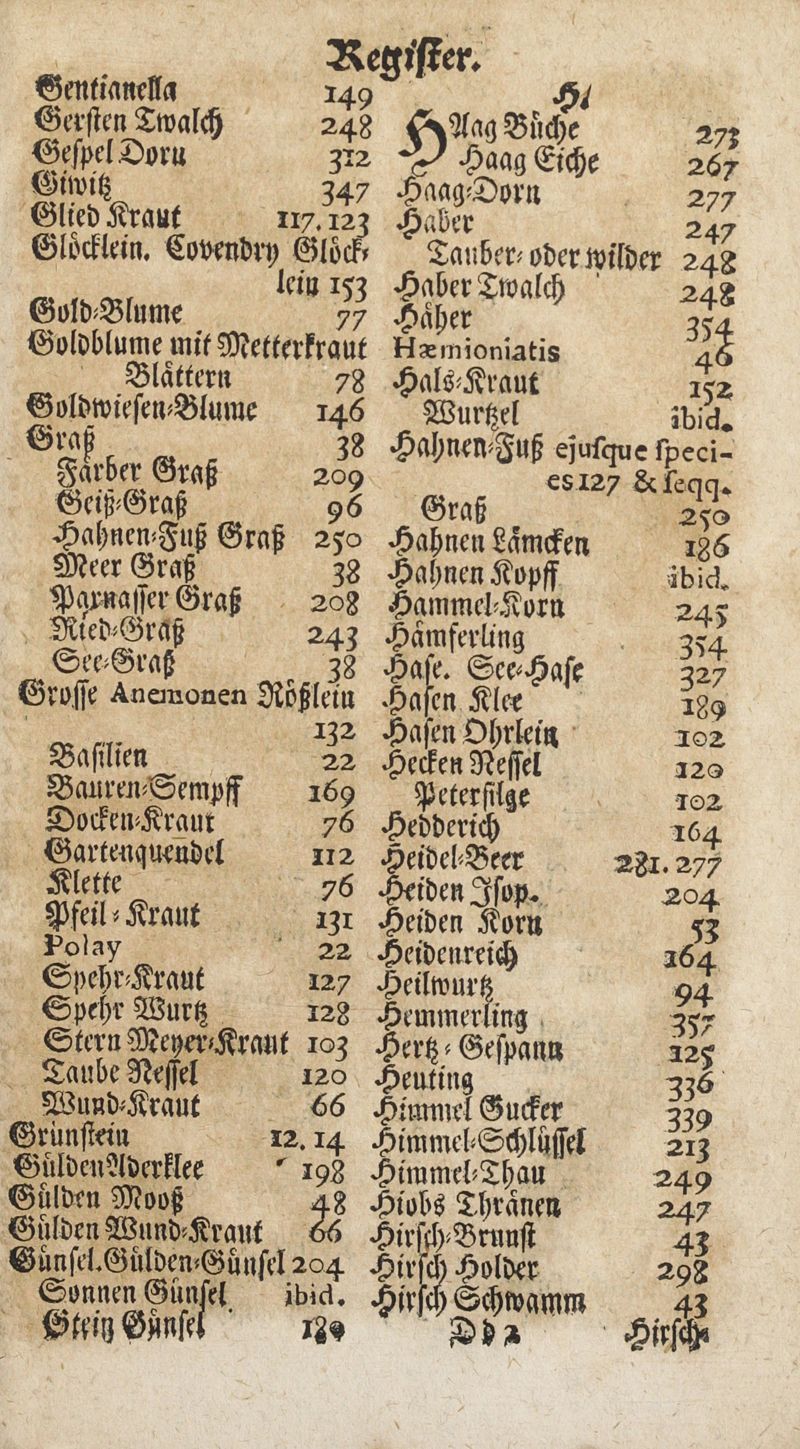 Register.
Gentianella 149
Gersten Twalch 248
Gespel Dorn 312
Giwitz 347
Glied Kraut 117. 123
Glöcklein. Covendry Glöck-
lein 153
Gold-Blume 77
Goldblume mit Metterkraut
Blättern 78
Goldwiesen-Blume 146
Graß 38
Färber Graß 209
Geiß-Graß 96
Hahnen-Fuß Graß 250
Meer Graß 38
Parnasser Graß 208
Ried-Graß 243
See-Graß 38
Grosse Anemonen Rößlein
132
Basilien 22
Bauren-Sempff 169
Docken-Kraut 76
Gartenquendel 112
Klette 76
Pfeil-Kraut 131
Polay 22
Spehr-Kraut 127
Spehr Wurtz 128
Stern Meyer-Kraut 103
Taube Nessel 120
Wund-Kraut 66
Grünstein 12. 14
Gülden Aderklee 198
Gülden Mooß 48
Gülden Wund-Kraut 66
Günsel. Gülden-Günsel 204
Sonnen Günsel ibid.
Stein Günsel
H.
HAag Büche 273
Haag Eiche 267
Haag-Dorn 277
Haber 247
Tauber- oder wilder 248
Haber Twalch 248
Häher 354
Hæmioniatis 46
Hals-Kraut 152
Wurtzel ibid.
Hahnen-Fuß ejusque speci-
es 127 & seqq.
Graß 250
Hahnen Lämcken 186
Hahnen Kopff ibid.
Hammel-Korn 245
Hämferling 354
Hase. See-Hase 327
Hasen Klee 189
Hasen Ohrlein 102
Hecken Nessel 120
Petersilge 102
Hedderich 164
Heidel-Beer 281. 277
Heiden Isop. 204
Heiden Korn 53
Heidenreich 164
Heilwurtz 94
Hemmerling 357
Hertz-Gespann 125
Heuting 336
Himmel Gucker 339
Himmel-Schlüssel 213
Himmel-Thau 249
Hiobs Thränen 247
Hirsch-Brunst 43
Hirsch Holder 298
Hirsch Schwamm 43
Dd 2 Hirsch-